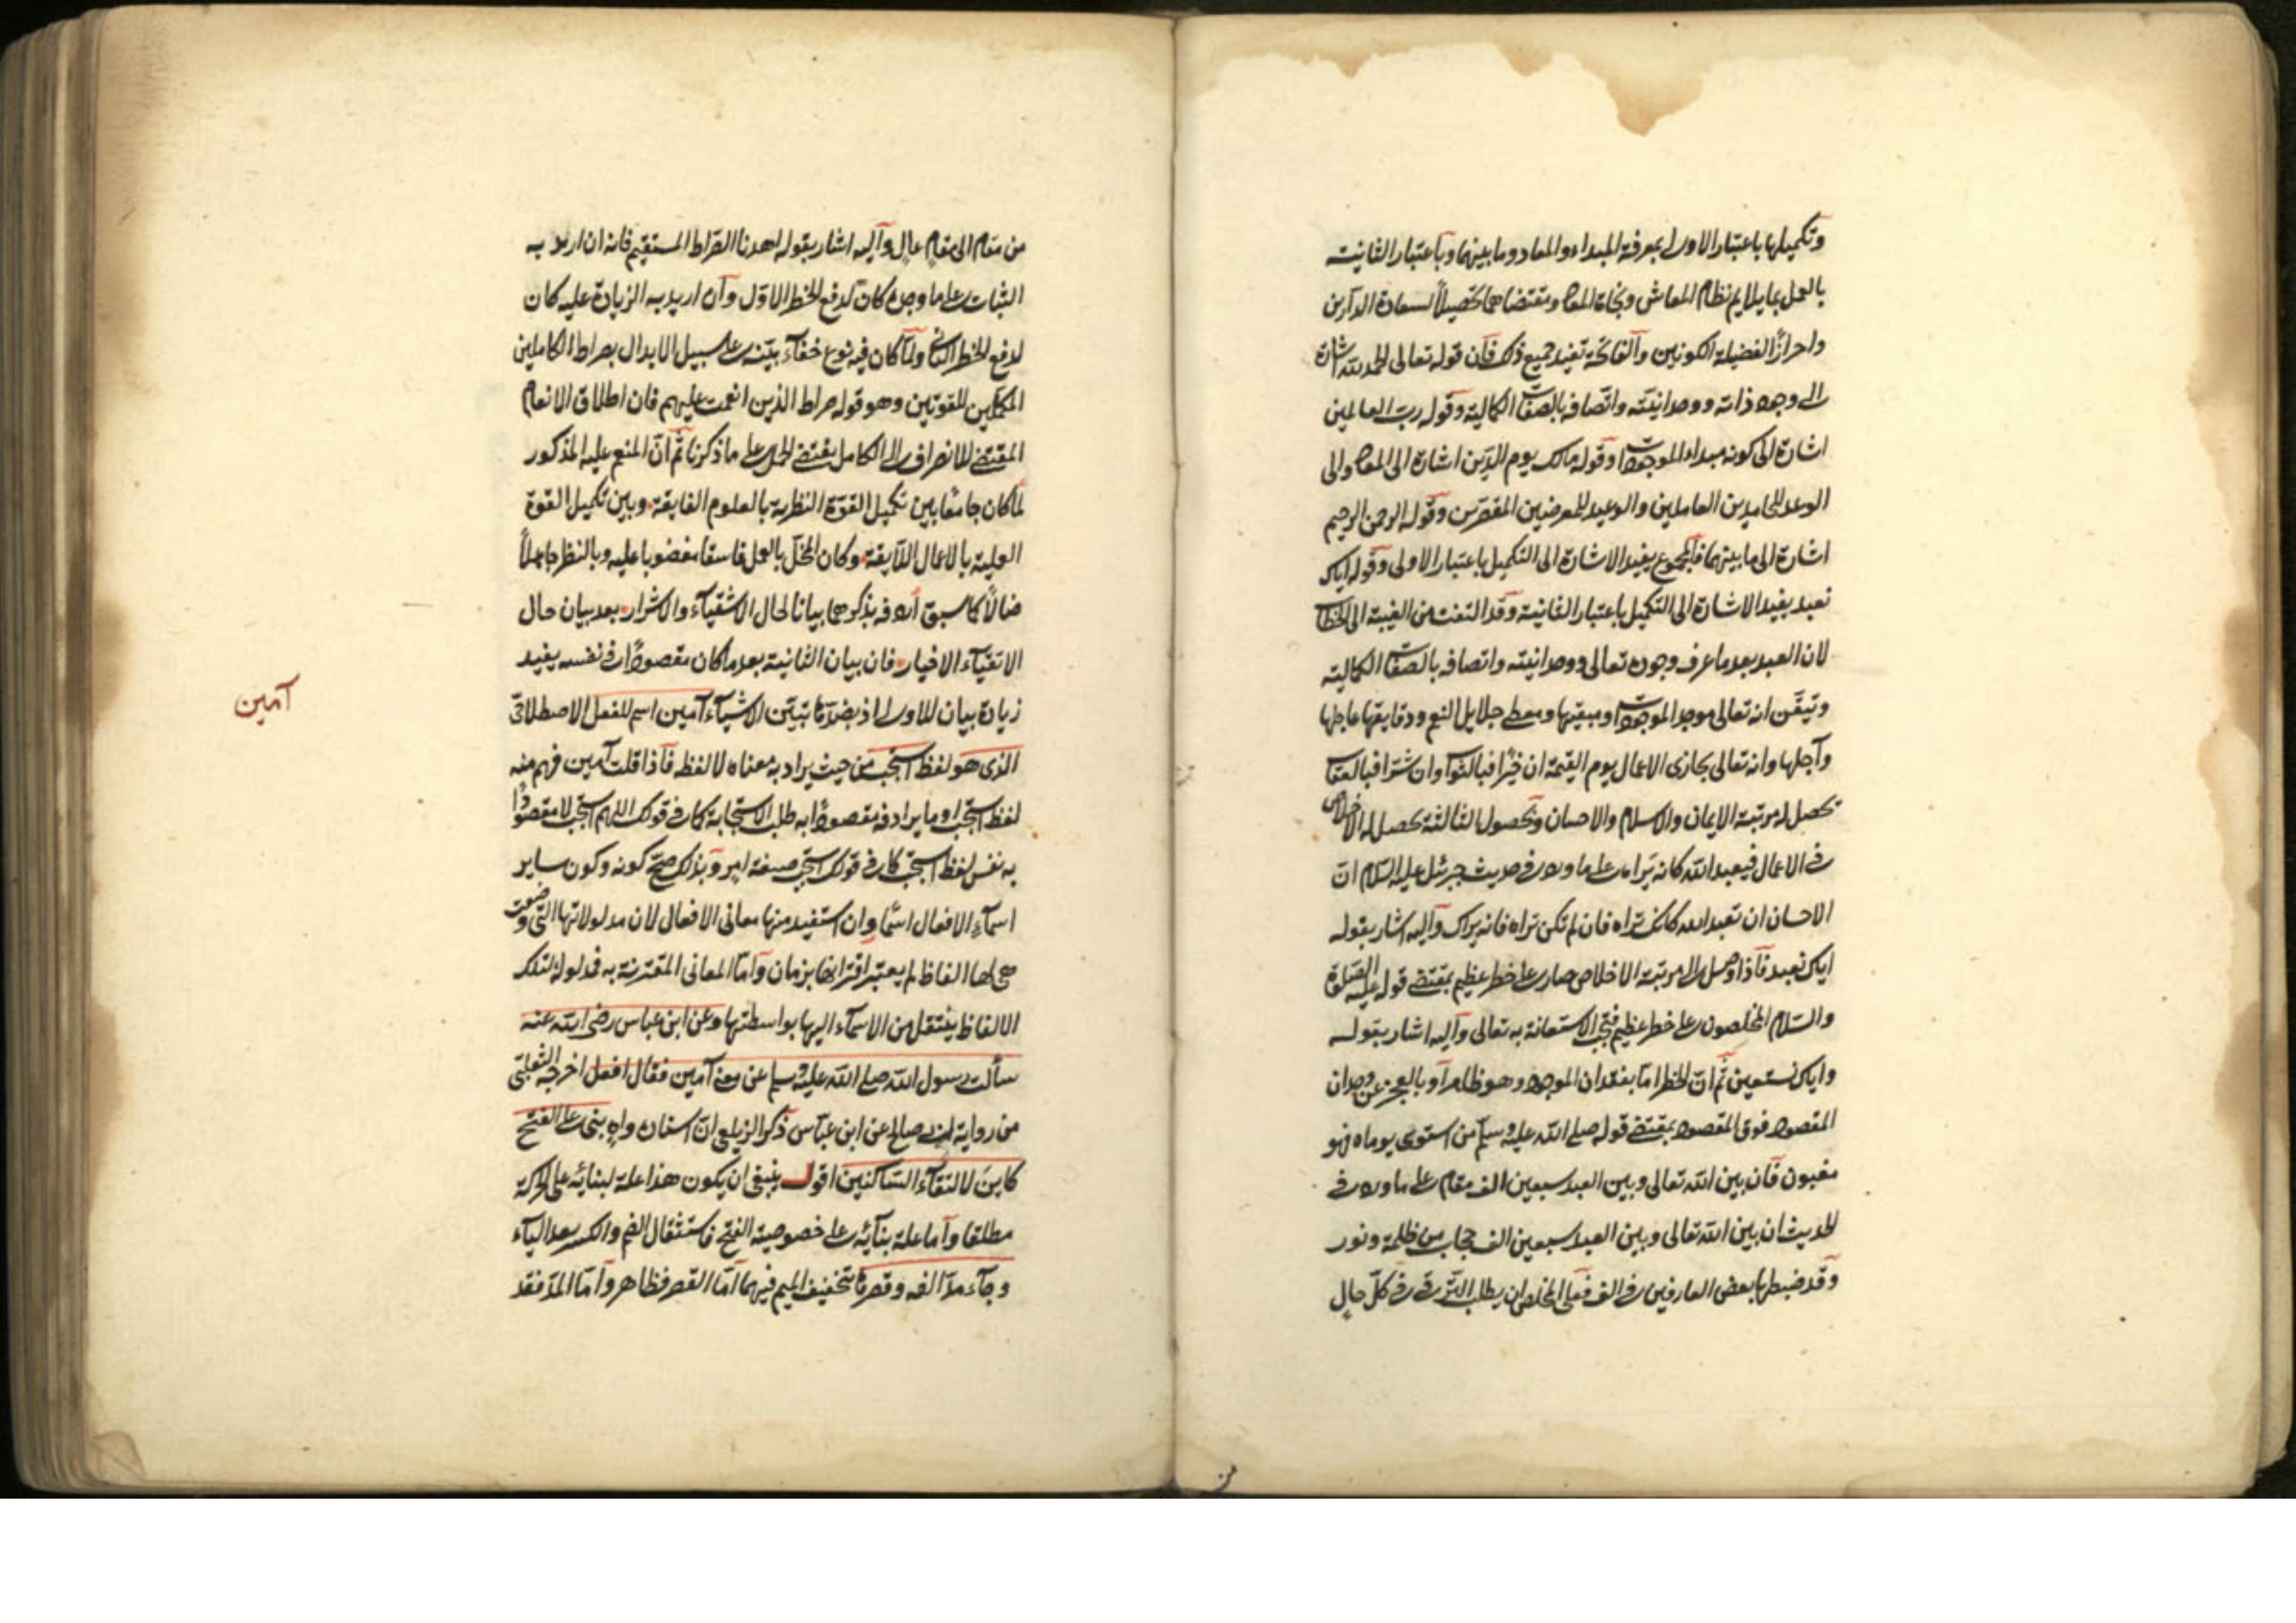 وتكميلها باعتبار الاولى بمعرفة المبداء والمعاد وما بينهما وباعتبار الثانية
بالعمل بما يلايم نظام المعاش ونجاة المعاد ومقتضاهما تحصيلاً لسعادة الدارين
واحرازًا لفضيلة الكونين والفاتحة تفيد جميع ذلك فان قوله تعالى الحمد لله اشارة
الى وجود ذاته ووحدانيته واتصافه بالصفات الكمالية وقوله رب العالمين
اشارة الى كونه مبداء للموجودات وقوله مالك يوم الدين اشارة الى المعاد والى
الوعد للحامدين العاملين والوعيد للمعرضين المقصرين وقوله الرحمن الرحيم
اشارة الى ما بينهما فالمجموع يفيد الاشارة الى التكميل باعتبار الاولى وقوله اياك
نعبد يفيد الاشارة الى التكميل باعتبار الثانية وقد التفت من الغيبة الى الخطاب
لان العبد بعد ما عرف وجوده تعالى ووحدانيته واتصافه بالصفات الكمالية
وتيقن انه تعالى موجد الموجودات ومبقيها ومعطي جلايل النعم ودقايقها عاجلها
وآجلها وانه تعالى يجازى الاعمال يوم القيمة ان خيرًا فبالثواب وان شرا فبالعقاب
تحصل له مرتبة الايمان والاسلام والاحسان وبحصول الثالثة يحصل له الاخلاص
في الاعمال فيعبد الله كانه يراه على ما ورد في حديث جبرئيل عليه السلام ان
الاحسان ان تعبد الله كانك تراه فان لم تكن تراه فانه يراك واليه اشار بقوله
اياك نعبد فاذا وصل الى مرتبة الاخلاص صار على خطر عظيم بمقتضى قوله عليه الصلوة
والسلام المخلصون على خطر عظيم فيجب الاستعانة به تعالى واليه اشار بقوله
واياك نستعين ثم ان الخطر اما بفقدان الموجود وهو ظاهر او بالعجز عن وجدان
المقصود فوق المقصود بمقتضى قوله صلى الله عليه وسلم من استوى يوماه فهو
مغبون فان بين الله تعالى وبين العبد سبعين الف مقام على ما ورد في
الحديث ان بين الله تعالى وبين العبد سبعين الف حجاب من ظلمة ونور
وقد ضبطها بعض العارفين في الف فعلى المخلص ان يطلب الترقى في كل حال
من
من مقام الى مقام عال واليه اشار بقوله اهدنا الصراط المستقيم فانه ان اريد به
الثبات على ما وجده كان لدفع الخطر الاول وان اريد به الزيادة عليه كان
لدفع الخطر الثاني ولما كان فيه نوع خفاء بينه على سبيل الابدال بصراط الكاملين
المكملين للقوتين وهو قوله صراط الذين انعمت عليهم فان اطلاق الانعام
المقتضى للانصراف الى الكامل يقتضى الحمل على ما ذكرنا ثم ان المنعم عليه المذكور
لما كان جامعًا بين تكميل القوة النظرية بالعلوم الفايقة وبين تكميل القوة
العملية بالاعمال اللايقة وكان المخل بالعمل فاسقا مغضوبا عليه وبالنظر جاهلاً
ضالاً كما سبق اردفه بذكرهما بيانا لحال الاشقياء والاشرار بعد بيان حال
الاتقياء الاخيار فان بيان الثانية بعد ما كان مقصودًا في نفسه يفيد
زيادة بيان للاولى اذ بضدها تتبين الاشياء آمين اسم للفعل الاصطلاحي
آمين
الذى هو لفظ استجب من حيث يراد به معناه لا لفظه فاذا قلت آمين فهم منه
لفظ استجب او ما يرادفه مقصودًا به طلب الاستجابة كما في قولك اللهم استجب لا مقصودًا
به نفس لفظ استجب كما في قولك استجب صيغة امر وبذلك صح كونه وكون ساير
اسماء الافعال اسمًا وان استفيد منها معانى الافعال لان مدلولاتها التى وضعت
هى لها الفاظ لم يعتبر اقترانها بزمان واما المعانى المقترنة به فمدلولة لتلك
الالفاظ ينتقل من الاسماء اليها بواسطتها وعن ابن عباس رضى الله عنه
سألت رسول الله صلى الله عليه وسلم عن معنى آمين فقال افعل اخرجه الثعلبى
من رواية ابى صالح عن ابن عباس ذكر الزيلعى ان اسناده واه بنى على الفتح
كاين لالتقاء الساكنين اقول ينبغى ان يكون هذا علة لبنائه على الحركة
مطلقا واما علة بنائه على خصوصية الفتح فاستثقال الضم والكسر بعد الياء
وجاء مد الفه وقصرها بتخفيف الميم فيهما اما القصر فظاهر واما المد فقد